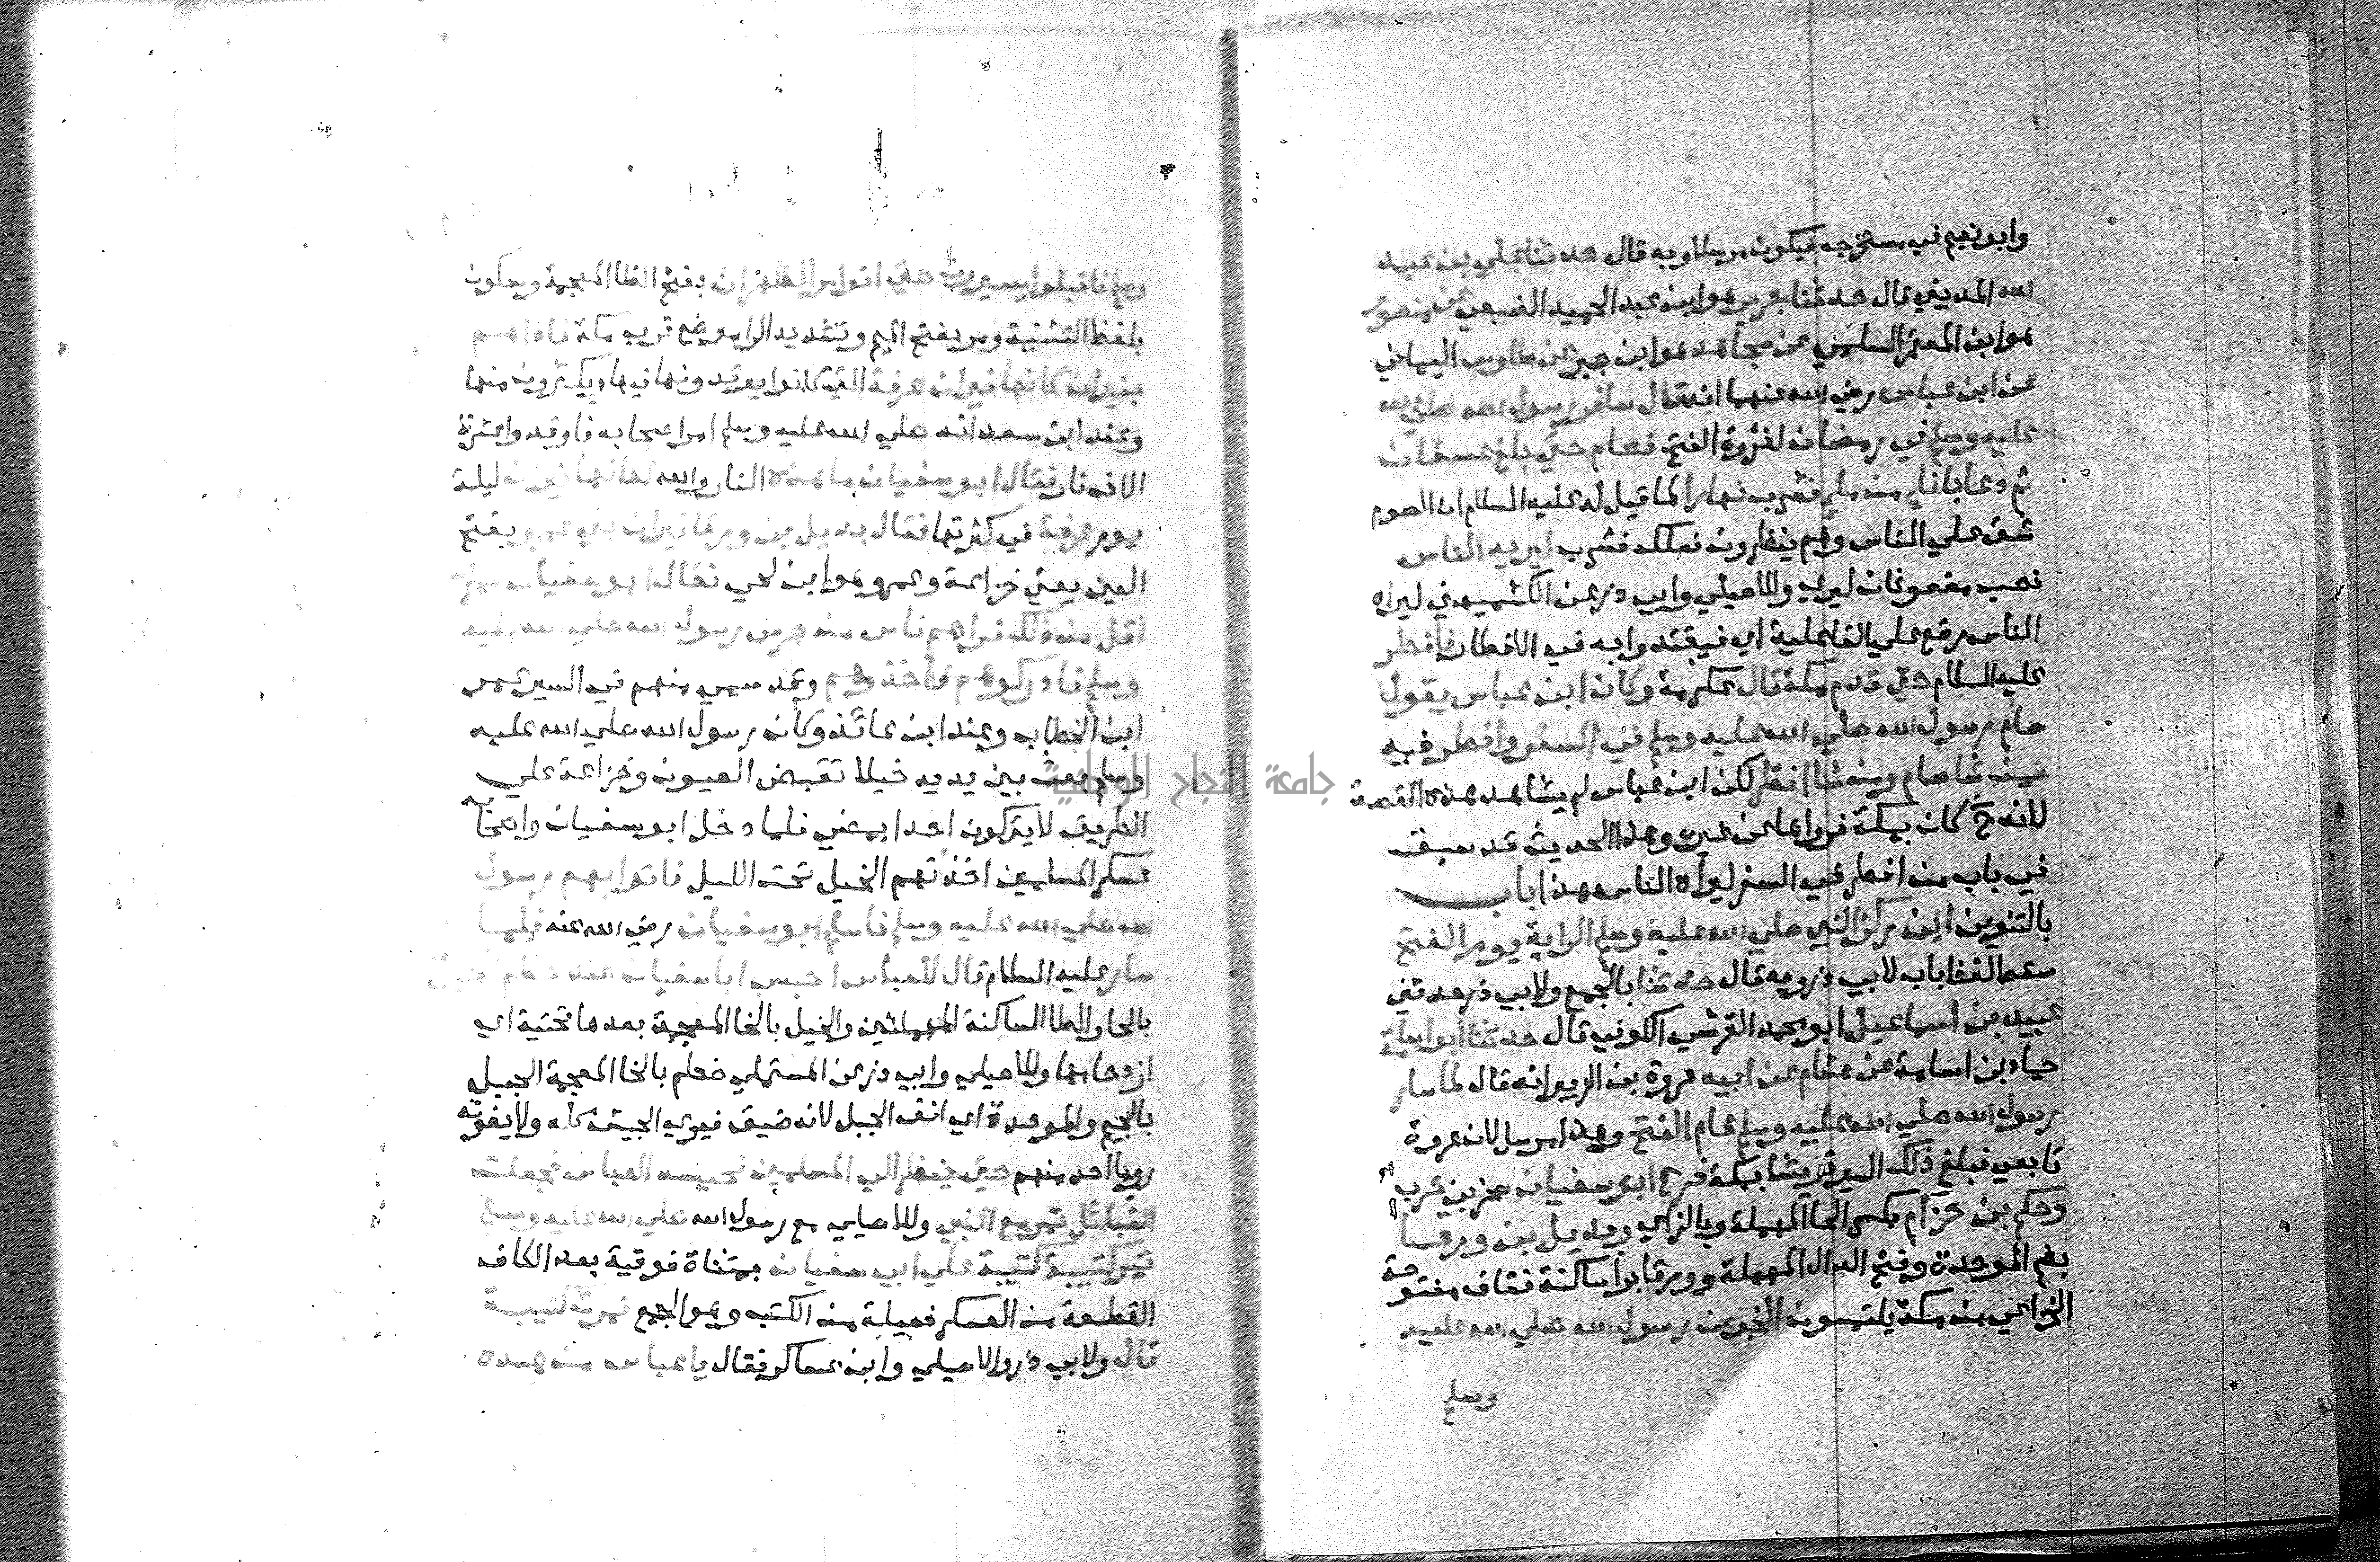 وابو نعيم في مستخرجه فيكون مرسلا وبه قال حدثنا علي بن عبد
الله المديني قال حدثنا جرير هو ابن عبد الحميد الضبعي عن منصور
هو ابن المعتمر السلمي عن مجاهد هو ابن جبر عن طاوس اليماني
عن ابن عباس رضي الله عنهما انه قال سافر رسول الله صلي الله
عليه وسلم في رمضان لغزوة الفتح فصام حتي بلغ عسفان
ثم دعا باناء من ماء فشرب نهارا لما قيل له عليه السلام ان الصوم
شق علي الناس وهم ينظرون فعلك فشرب ليريه الناس
نصب مفعولان ليري وللاصيلي وابي ذر عن الكشميهني ليراه
الناس رفع علي الفاعلية اي فيقتدوا به في الافطار فافطر
عليه السلام حتي قدم مكة قال عكرمة وكان ابن عباس يقول
صام رسول الله صلي الله عليه وسلم في السفر وافطر فيه
فمن شا صام ومن شا افطر لكن ابن عباس لم يشاهد هذه القصة
لانه ح كان بمكة فرواها عن غيره وهذا الحديث قد سبق
في باب من افطر في السفر ليراه الناس هذا باب
بالتنوين اين ركز النبي صلي الله عليه وسلم الراية يوم الفتح
سقط لفظ باب لابي ذر وبه قال حدثنا بالجمع ولابي ذر حدثني
عبيد بن اسماعيل ابو محمد القرشي الكوفي قال حدثنا ابو اسامة
حماد بن اسامة عن هشام عن ابيه عروة بن الزبير انه قال لما سار
رسول الله صلي الله عليه وسلم عام الفتح وهذا مرسل لان عروة
تابعي فبلغ ذلك السير قريشا بمكة خرج ابو سفيان صخر بن حرب
وحكيم بن حزام بكسر الحا المهملة وبالزاي وبديل بن ورقا
بضم الموحدة وفتح الدال المهملة وورقا براساكنة فقاف مفتوحة
الخزاعي من مكة يلتمسون الخبر عن رسول الله صلي الله عليه
وسلم
وسلم فاقبلوا يسيرون حتي اتوا مر الظهران بفتح الظا المعجمة وسكون
بلفظ التثنية ومر بفتح الميم وتشديد الرا موضع قرب مكة فاذا هم
بنيران كانها نيران عرفة التي كانوا يوقدونها فيها ويكثرون منها
وعند ابن سعد انه صلي الله عليه وسلم امر اصحابه فاوقدوا عشرة
الاف نار فقال ابو سفيان ما هذه النار والله لكانها نيران ليلة
يوم عرفة في كثرتها فقال بديل بن ورقا نيران بني عمرو بفتح
العين يعني خزاعة وعمرو هو ابن لحي فقال ابو سفيان عمرو
اقل من ذلك فراهم ناس من حرس رسول الله صلي الله عليه
وسلم فادركوهم فاخذوهم وقد سمي منهم في السير عمر
ابن الخطاب وعند ابن عائذ وكان رسول الله صلي الله عليه
وسلم بعث بين يديه خيلا تقبض العيون وخزاعة علي
الطريق لا يتركون احدا يمضي فلما دخل ابو سفيان واصحابه
عسكر المسلمين اخذتهم الخيل تحت الليل فاتوا بهم رسول
الله صلي الله عليه وسلم فاسلم ابو سفيان رضي الله عنه فلما
سار عليه السلام قال للعباس احبس ابا سفيان عند حطم الخيل
بالحا والطا الساكنة المهملتين والخيل بالخا المعجمة بعدها تحتية اي
ازدحامها وللاصيلي وابي ذر عن المستملي خطم بالخا المعجمة الجبل
بالجيم والموحدة اي انف الجبل لانه ضيق فيري الجيش كله ولا يفوته
رويا احد منهم حتي ينظر الي المسلمين فحبسه العباس فجعلت
القبائل تمر مع النبي وللاصيلي مع رسول الله صلي الله عليه وسلم
تمر كتيبة كتيبة علي ابي سفيان بمثناة فوقية بعد الكاف
القطعة من العسكر فعيلة من الكتب وهو الجمع فمرت كتيبة
قال ولابي ذر والاصيلي وابن عساكر فقال يا عباس من هذه
جامعة النجاح الوطنية